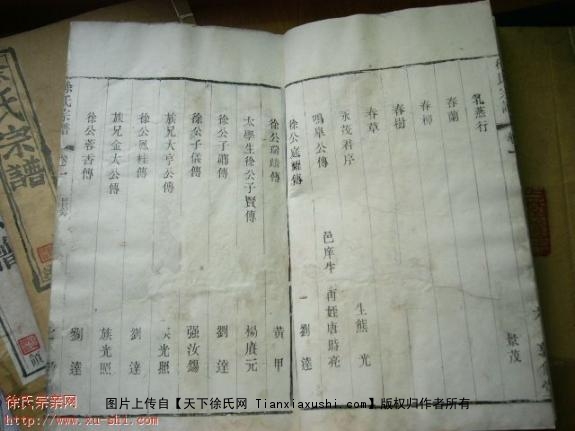 徐氏宗譜
乳燕行
春蘭
春柳
春樹
春草
永茂君序
鳴皋公傳
徐公庭耀傳
景茂
生熊光
邑庠生 再姪唐時亮
劉達
徐公瑞
太學生徐公子賢傳
徐公子儀傳
族兄大亨公傳
徐公鳳桂傳
族兄金太公傳
徐公蓉香傳
黃甲
楊賡元
劉達
強汝錫
族光照
劉達
族光照
劉達
徐氏宗譜 卷一
氏宗譜
譜
館
徐氏宗亲网
http://www.xu-shi.com/
图片上传自【天下徐氏网 Tianxiaxushi.com】版权归作者所有